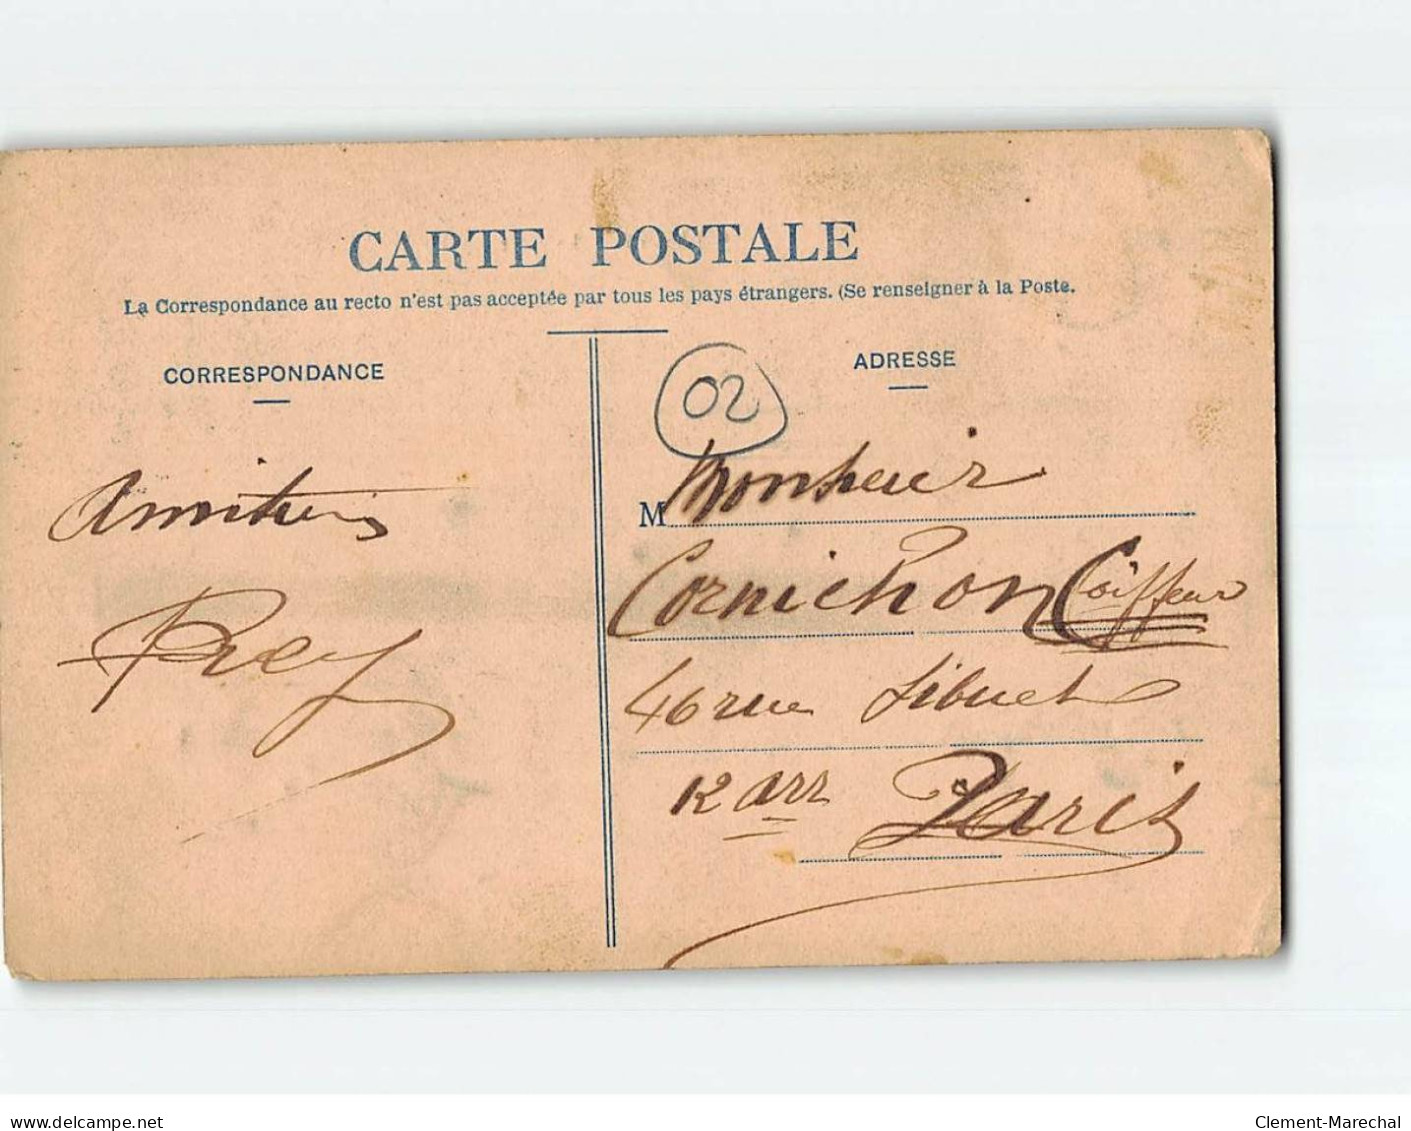 CARTE POSTALE
La Correspondance au recto n'est pas acceptée par tous les pays étrangers. (Se renseigner à la Poste.
CORRESPONDANCE
ADRESSE
02
Amitiés
M Monsieur
Cornichon Coiffeur
46 rue Sibuet
12 arr Paris
delcampe.net
Clement-Marechal